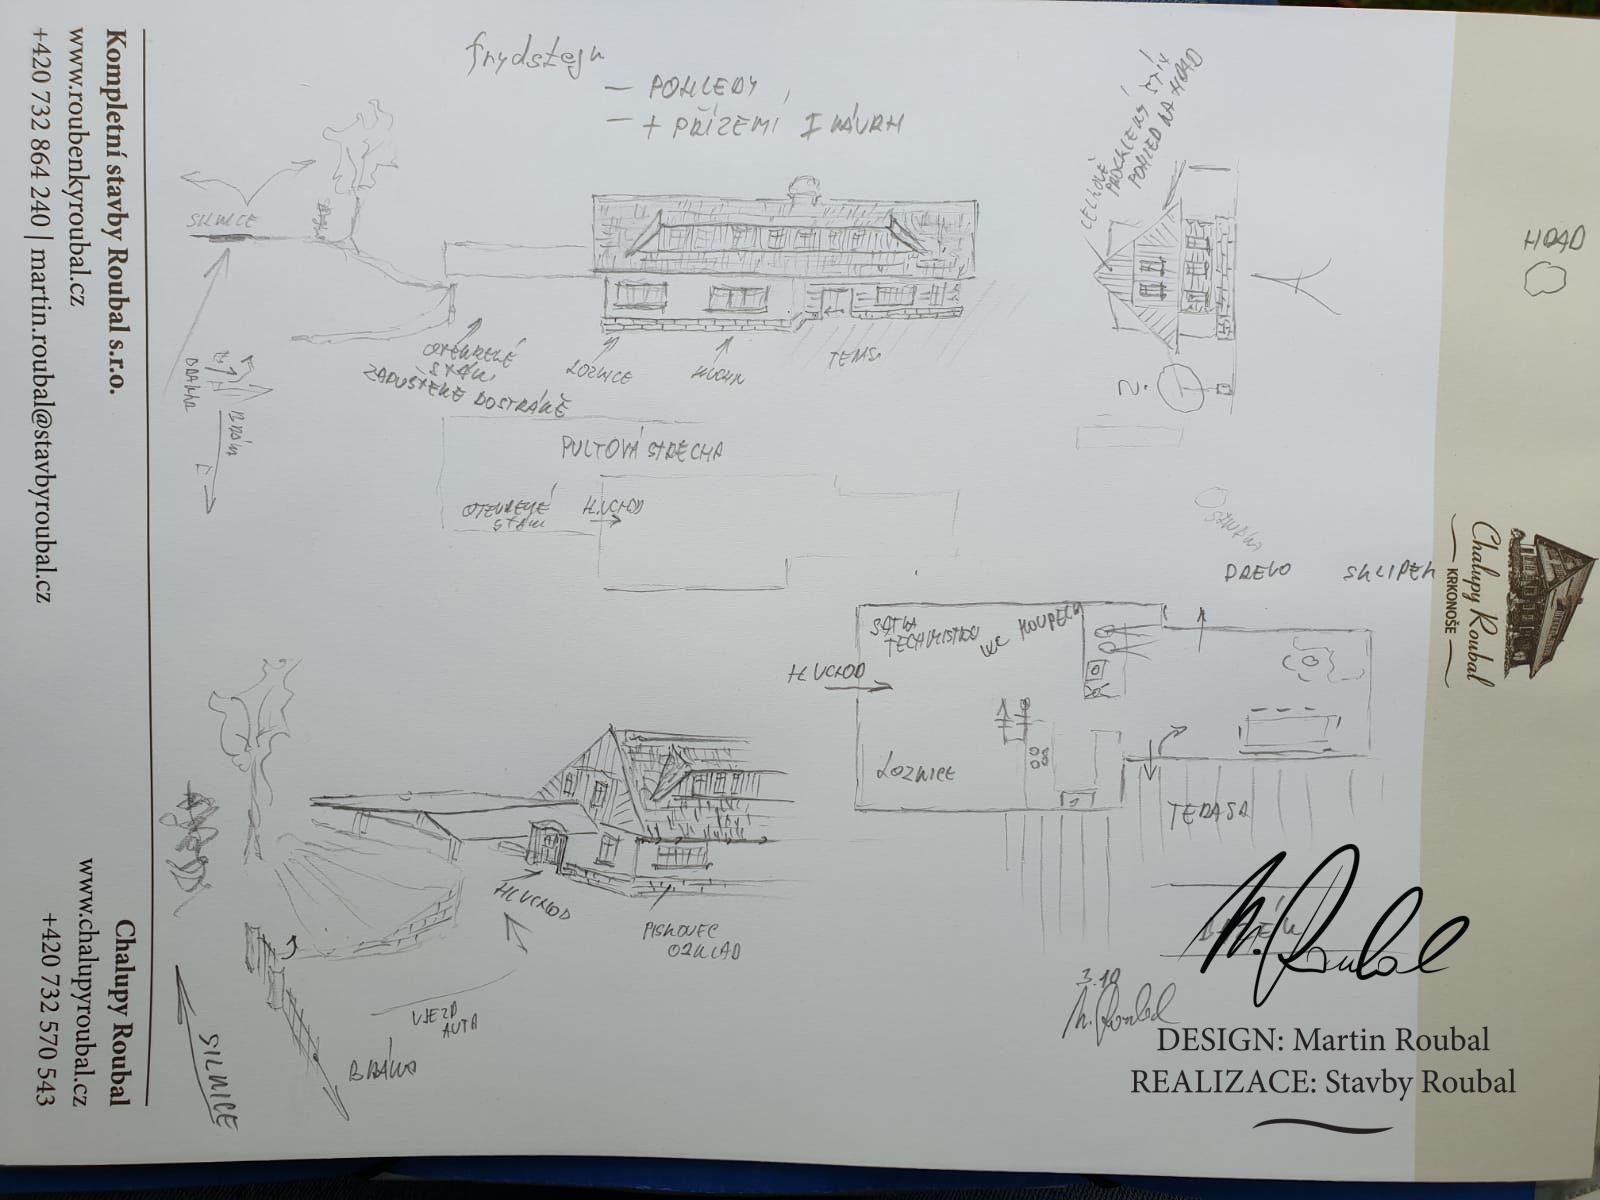 Kompletní stavby Roubal s.r.o.
www.roubenkyroubal.cz
+420 732 864 240 | martin.roubal@stavbyroubal.cz
Chalupy Roubal
www.chalupyroubal.cz
+420 732 570 543
frydštejn
— POHLEDY
— + PŘÍZEMÍ I NÁVRH
CELKOVĚ
PROSKLENÝ ŠTÍT
POHLED NA HRAD
HRAD
SILNICE
OTEVŘENÉ
STÁNÍ
ZAPUŠTĚNÉ DO STRÁNĚ
LOŽNICE
KUCHN
TERAS
BRÁNA
2.
PULTOVÁ STŘECHA
OTEVŘENÉ
STÁNÍ
H.VCHOD
DŘEVO
SKLÍPEK
Chalupy Roubal
KRKONOŠE
ŠATNA
TECHMISTNO
WC KOUPELN
H.VCHOD
LOZNICE
TERASA
BAZÉN
HL.VCHOD
PISKOVEC
OBKLAD
VJEZD
AUTA
BRÁNA
SILNICE
3.19
M. Roubal
M. Roubal
DESIGN: Martin Roubal
REALIZACE: Stavby Roubal